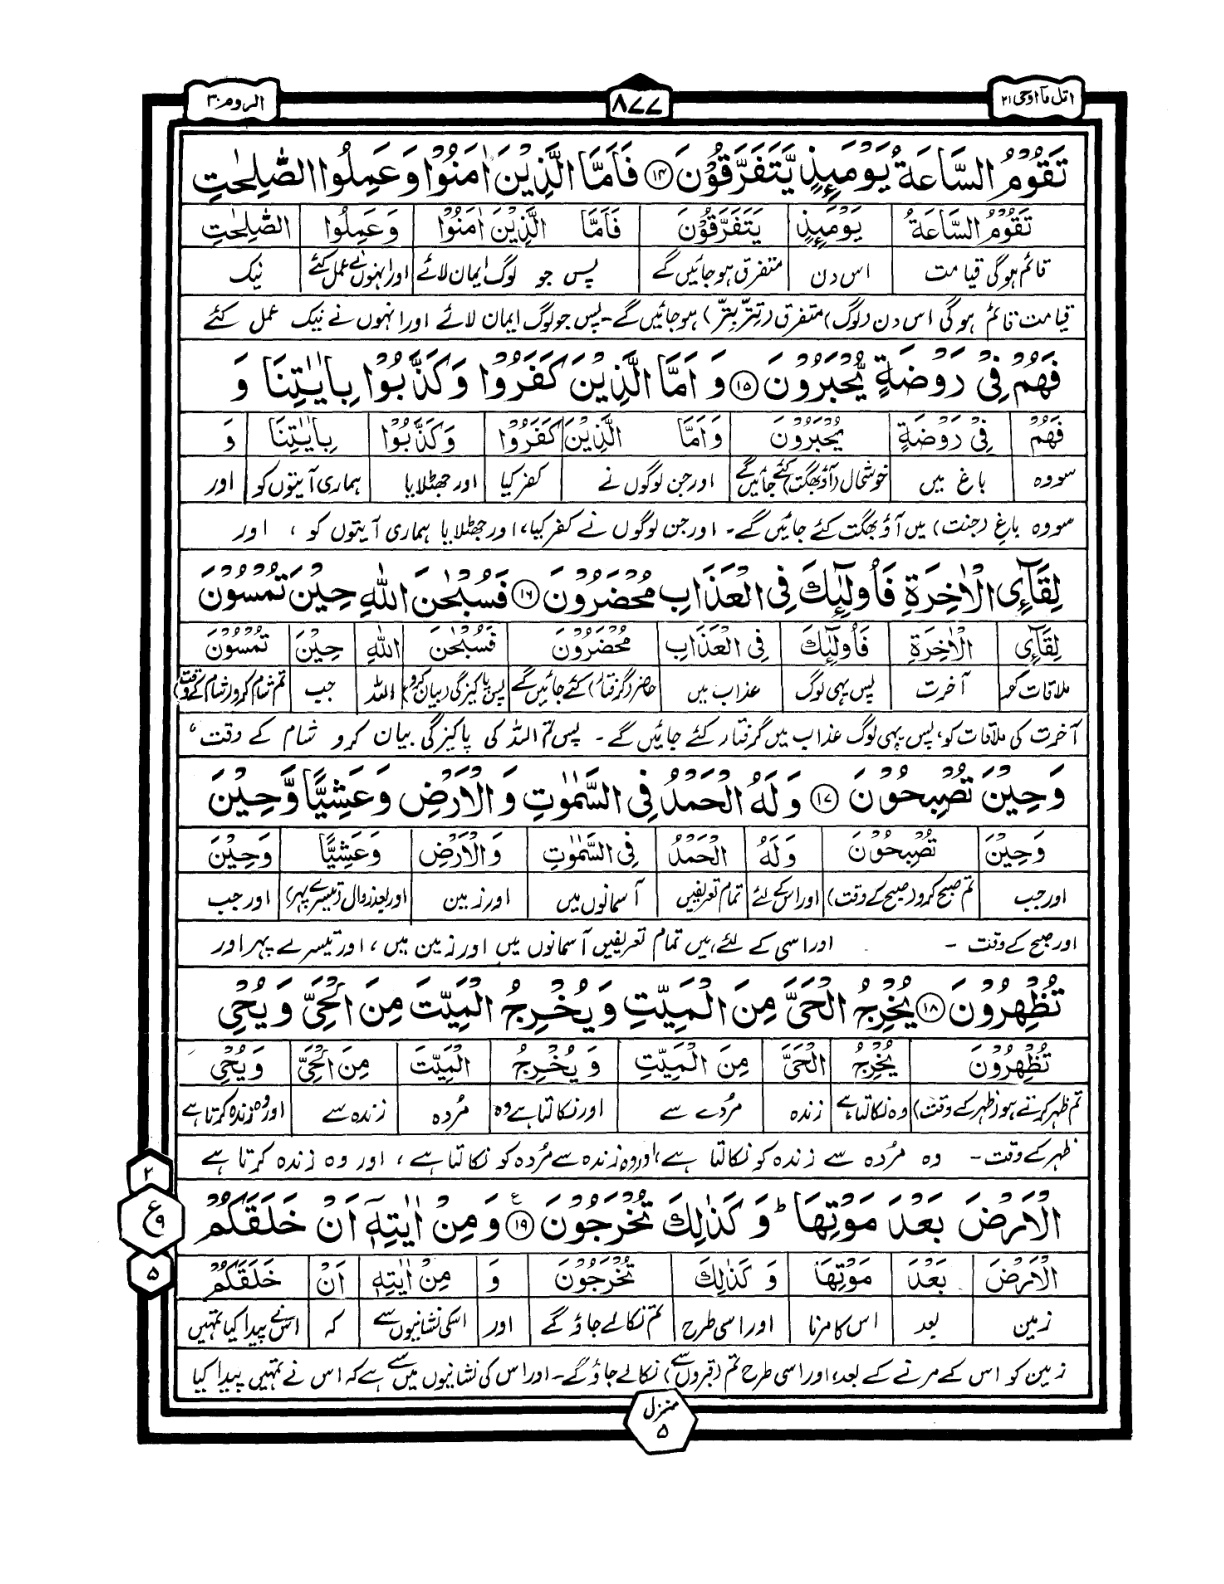 اتل مآ اوحی ۲۱
۸۷۷
الروم ۳۰
تَقُوْمُ السَّاعَةُ يَوْمَئِذٍ يَّتَفَرَّقُوْنَ ۝۱۴ فَاَمَّا الَّذِيْنَ اٰمَنُوْا وَعَمِلُوا الصّٰلِحٰتِ
تَقُوْمُ السَّاعَةُ يَوْمَئِذٍ يَتَفَرَّقُوْنَ فَاَمَّا الَّذِيْنَ اٰمَنُوْا وَعَمِلُوا الصّٰلِحٰتِ
قائم ہوگی قیامت اس دن متفرق ہوجائیں گے پس جو لوگ ایمان لائے اور انہوں نے عمل کئے نیک
قیامت قائم ہوگی اس دن (لوگ) متفرق (تتر بتر) ہوجائیں گے۔ پس جو لوگ ایمان لائے اور انہوں نے نیک عمل کئے
فَهُمْ فِيْ رَوْضَةٍ يُّحْبَرُوْنَ ۝۱۵ وَاَمَّا الَّذِيْنَ كَفَرُوْا وَكَذَّبُوْا بِاٰيٰتِنَا وَ
فَهُمْ فِيْ رَوْضَةٍ يُحْبَرُوْنَ وَاَمَّا الَّذِيْنَ كَفَرُوْا وَكَذَّبُوْا بِاٰيٰتِنَا وَ
سو وہ باغ میں خوشحال (آؤ بھگت) کئے جائیں گے اور جن لوگوں نے کفر کیا اور جھٹلایا ہماری آیتوں کو اور
سو وہ باغ (جنت) میں آؤ بھگت کئے جائیں گے۔ اور جن لوگوں نے کفر کیا، اور جھٹلایا ہماری آیتوں کو ، اور
لِقَآئِ الْاٰخِرَةِ فَاُولٰٓئِكَ فِي الْعَذَابِ مُحْضَرُوْنَ ۝۱۶ فَسُبْحٰنَ اللّٰهِ حِيْنَ تُمْسُوْنَ
لِقَآئِ الْاٰخِرَةِ فَاُولٰٓئِكَ فِي الْعَذَابِ مُحْضَرُوْنَ فَسُبْحٰنَ اللّٰهِ حِيْنَ تُمْسُوْنَ
ملاقات کو آخرت پس یہی لوگ عذاب میں حاضر (گرفتار) کئے جائیں گے پس پاکیزگی (بیان کرو) اللہ جب تم شام کرو (شام کے وقت)
آخرت کی ملاقات کو، پس یہی لوگ عذاب میں گرفتار کئے جائیں گے ۔ پس تم اللہ کی پاکیزگی بیان کرو شام کے وقت ،
وَحِيْنَ تُصْبِحُوْنَ ۝۱۷ وَلَهُ الْحَمْدُ فِي السَّمٰوٰتِ وَالْاَرْضِ وَعَشِيًّا وَّحِيْنَ
وَحِيْنَ تُصْبِحُوْنَ وَلَهُ الْحَمْدُ فِي السَّمٰوٰتِ وَالْاَرْضِ وَعَشِيًّا وَحِيْنَ
اور جب تم صبح کرو (صبح کے وقت) اور اس کے لئے تمام تعریفیں آسمانوں میں اور زمین اور بعد زوال (تیسرے پہر) اور جب
اور صبح کے وقت ۔ اور اسی کے لئے ہیں تمام تعریفیں آسمانوں میں اور زمین میں ، اور تیسرے پہر اور
تُظْهِرُوْنَ ۝۱۸ يُخْرِجُ الْحَيَّ مِنَ الْمَيِّتِ وَيُخْرِجُ الْمَيِّتَ مِنَ الْحَيِّ وَيُحْيِ
تُظْهِرُوْنَ يُخْرِجُ الْحَيَّ مِنَ الْمَيِّتِ وَيُخْرِجُ الْمَيِّتَ مِنَ الْحَيِّ وَيُحْيِ
تم ظہر کرتے ہو (ظہر کے وقت) وہ نکالتا ہے زندہ مُردے سے اور نکالتا ہے وہ مُردہ زندہ سے اور وہ زندہ کرتا ہے
ظہر کے وقت ۔ وہ مُردہ سے زندہ کو نکالتا ہے، اور وہ زندہ سے مُردہ کو نکالتا ہے ، اور وہ زندہ کرتا ہے
الْاَرْضَ بَعْدَ مَوْتِهَا ؕ وَكَذٰلِكَ تُخْرَجُوْنَ ۝۱۹ ع وَمِنْ اٰيٰتِهٖٓ اَنْ خَلَقَكُمْ
الْاَرْضَ بَعْدَ مَوْتِهَا وَكَذٰلِكَ تُخْرَجُوْنَ وَ مِنْ اٰيٰتِهٖٓ اَنْ خَلَقَكُمْ
زمین بعد اس کا مرنا اور اسی طرح تم نکالے جاؤ گے اور اسکی نشانیوں سے کہ اس نے پیدا کیا تمہیں
زمین کو اس کے مرنے کے بعد، اور اسی طرح تم (قبروں سے) نکالے جاؤ گے۔ اور اس کی نشانیوں میں سے ہے کہ اس نے تمہیں پیدا کیا
۲
ع ۹
۵
منزل
۵